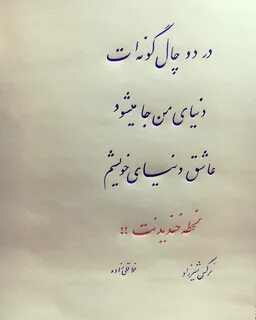 در دو چال گونه ات
دنیای من جا میشود
عاشق دنیای خویشم
لحظه خندیدنت !!
نرگس شیرزاد